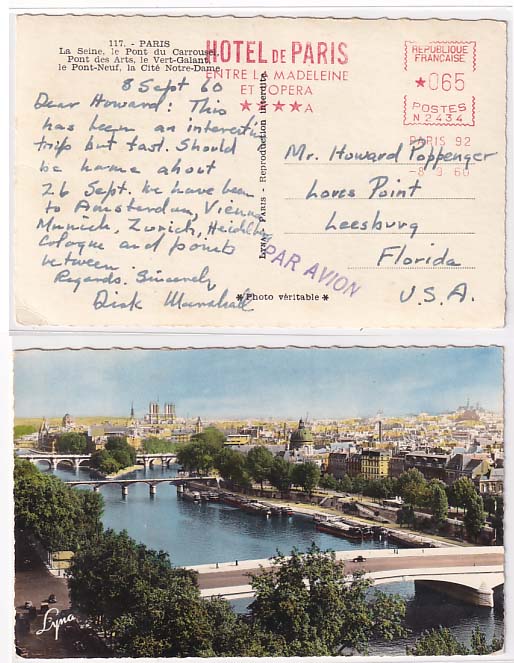 117. - PARIS
La Seine, le Pont du Carrousel,
Pont des Arts, le Vert-Galant,
le Pont-Neuf, la Cité Notre-Dame
HOTEL DE PARIS
ENTRE LA MADELEINE
ET L'OPERA
★ ★ ★ ★ A
REPUBLIQUE
FRANÇAISE
★065
POSTES
N 2434
PARIS 92
-8 9 60
8 Sept 60
Dear Howard: This
has been an interesting
trip but fast. Should
be home about
26 Sept. We have been
to Amsterdam, Vienna
Munich, Zurich, Heidelberg
Cologne and points
between.
Regards. Sincerely
Dick Marshall
LYNA, PARIS - Reproduction interdite.
Mr. Howard Poppenger
Loves Point
Leesburg
Florida
U.S.A.
PAR AVION
*Photo véritable*
Lyna